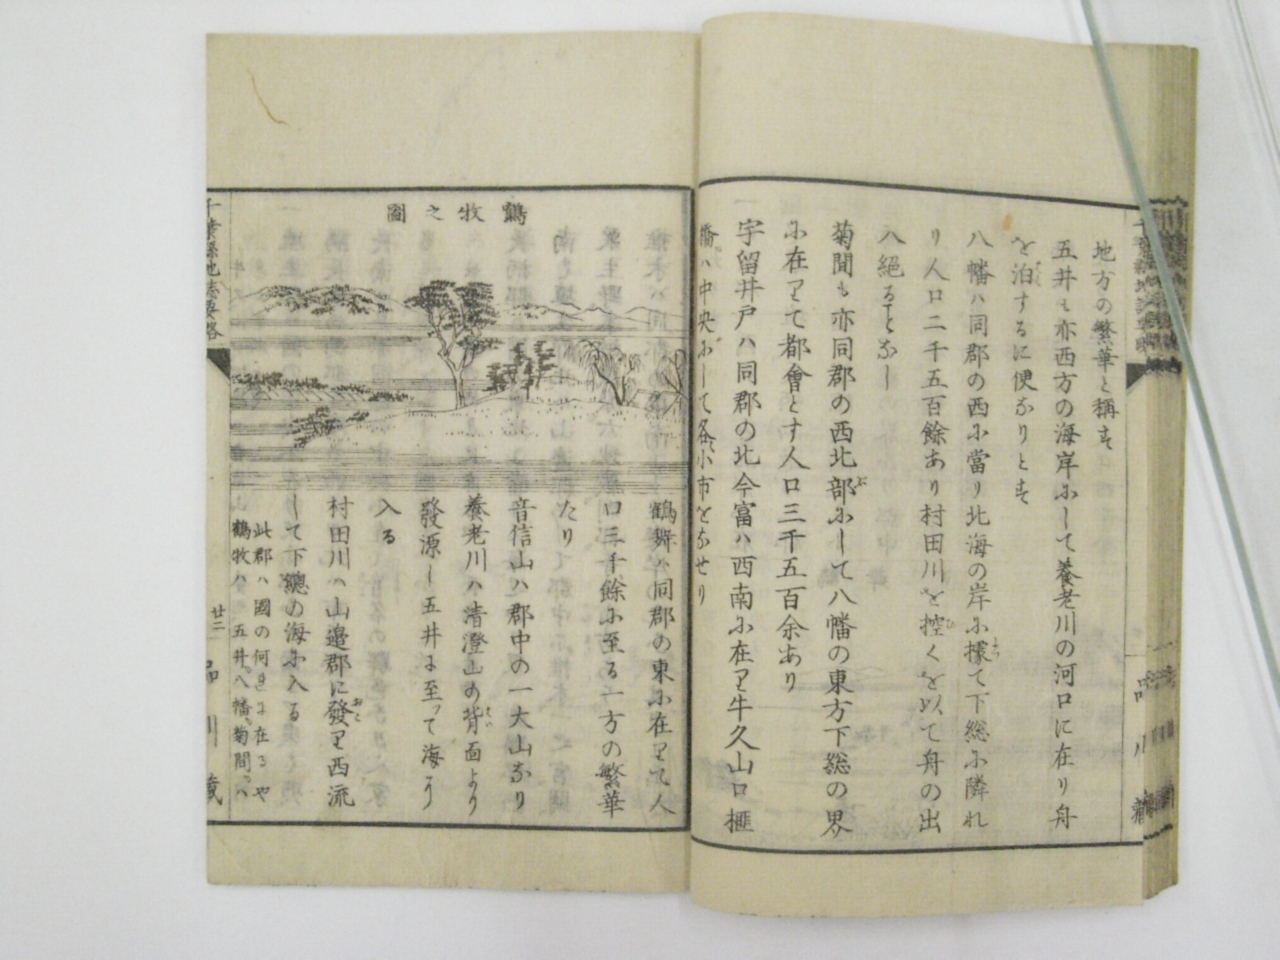 地方の繁華と稱す
五井も亦西方の海岸ふして養老川の河口に在り舟
を泊するに便なりとす
八幡ハ同郡の西ふ當り北海の岸ふ據て下総ふ隣れ
り人口二千五百餘あり村田川を控くを以て舟の出
入絶ることなし
菊間も亦同郡の西北部ふして八幡の東方下総の界
ふ在りて都會とす人口三千五百余あり
宇留井戸ハ同郡の北今富ハ西南ふ在り牛久山口櫃
橋ハ中央ふして各小市をなせり
鶴牧之圖
鶴舞ハ同郡の東ふ在りて人
口三千餘ふ至る一方の繁華
たり
音信山ハ郡中の一大山なり
養老川ハ清澄山の背面より
發源し五井に至って海に
入る
村田川ハ山邉郡に發し西流
して下總の海ふ入る
此郡ハ國の何れに在るや
鶴牧ハ 五井ハ 八幡ハ 菊間ハ
千葉縣地誌要略
廿二
品川藏